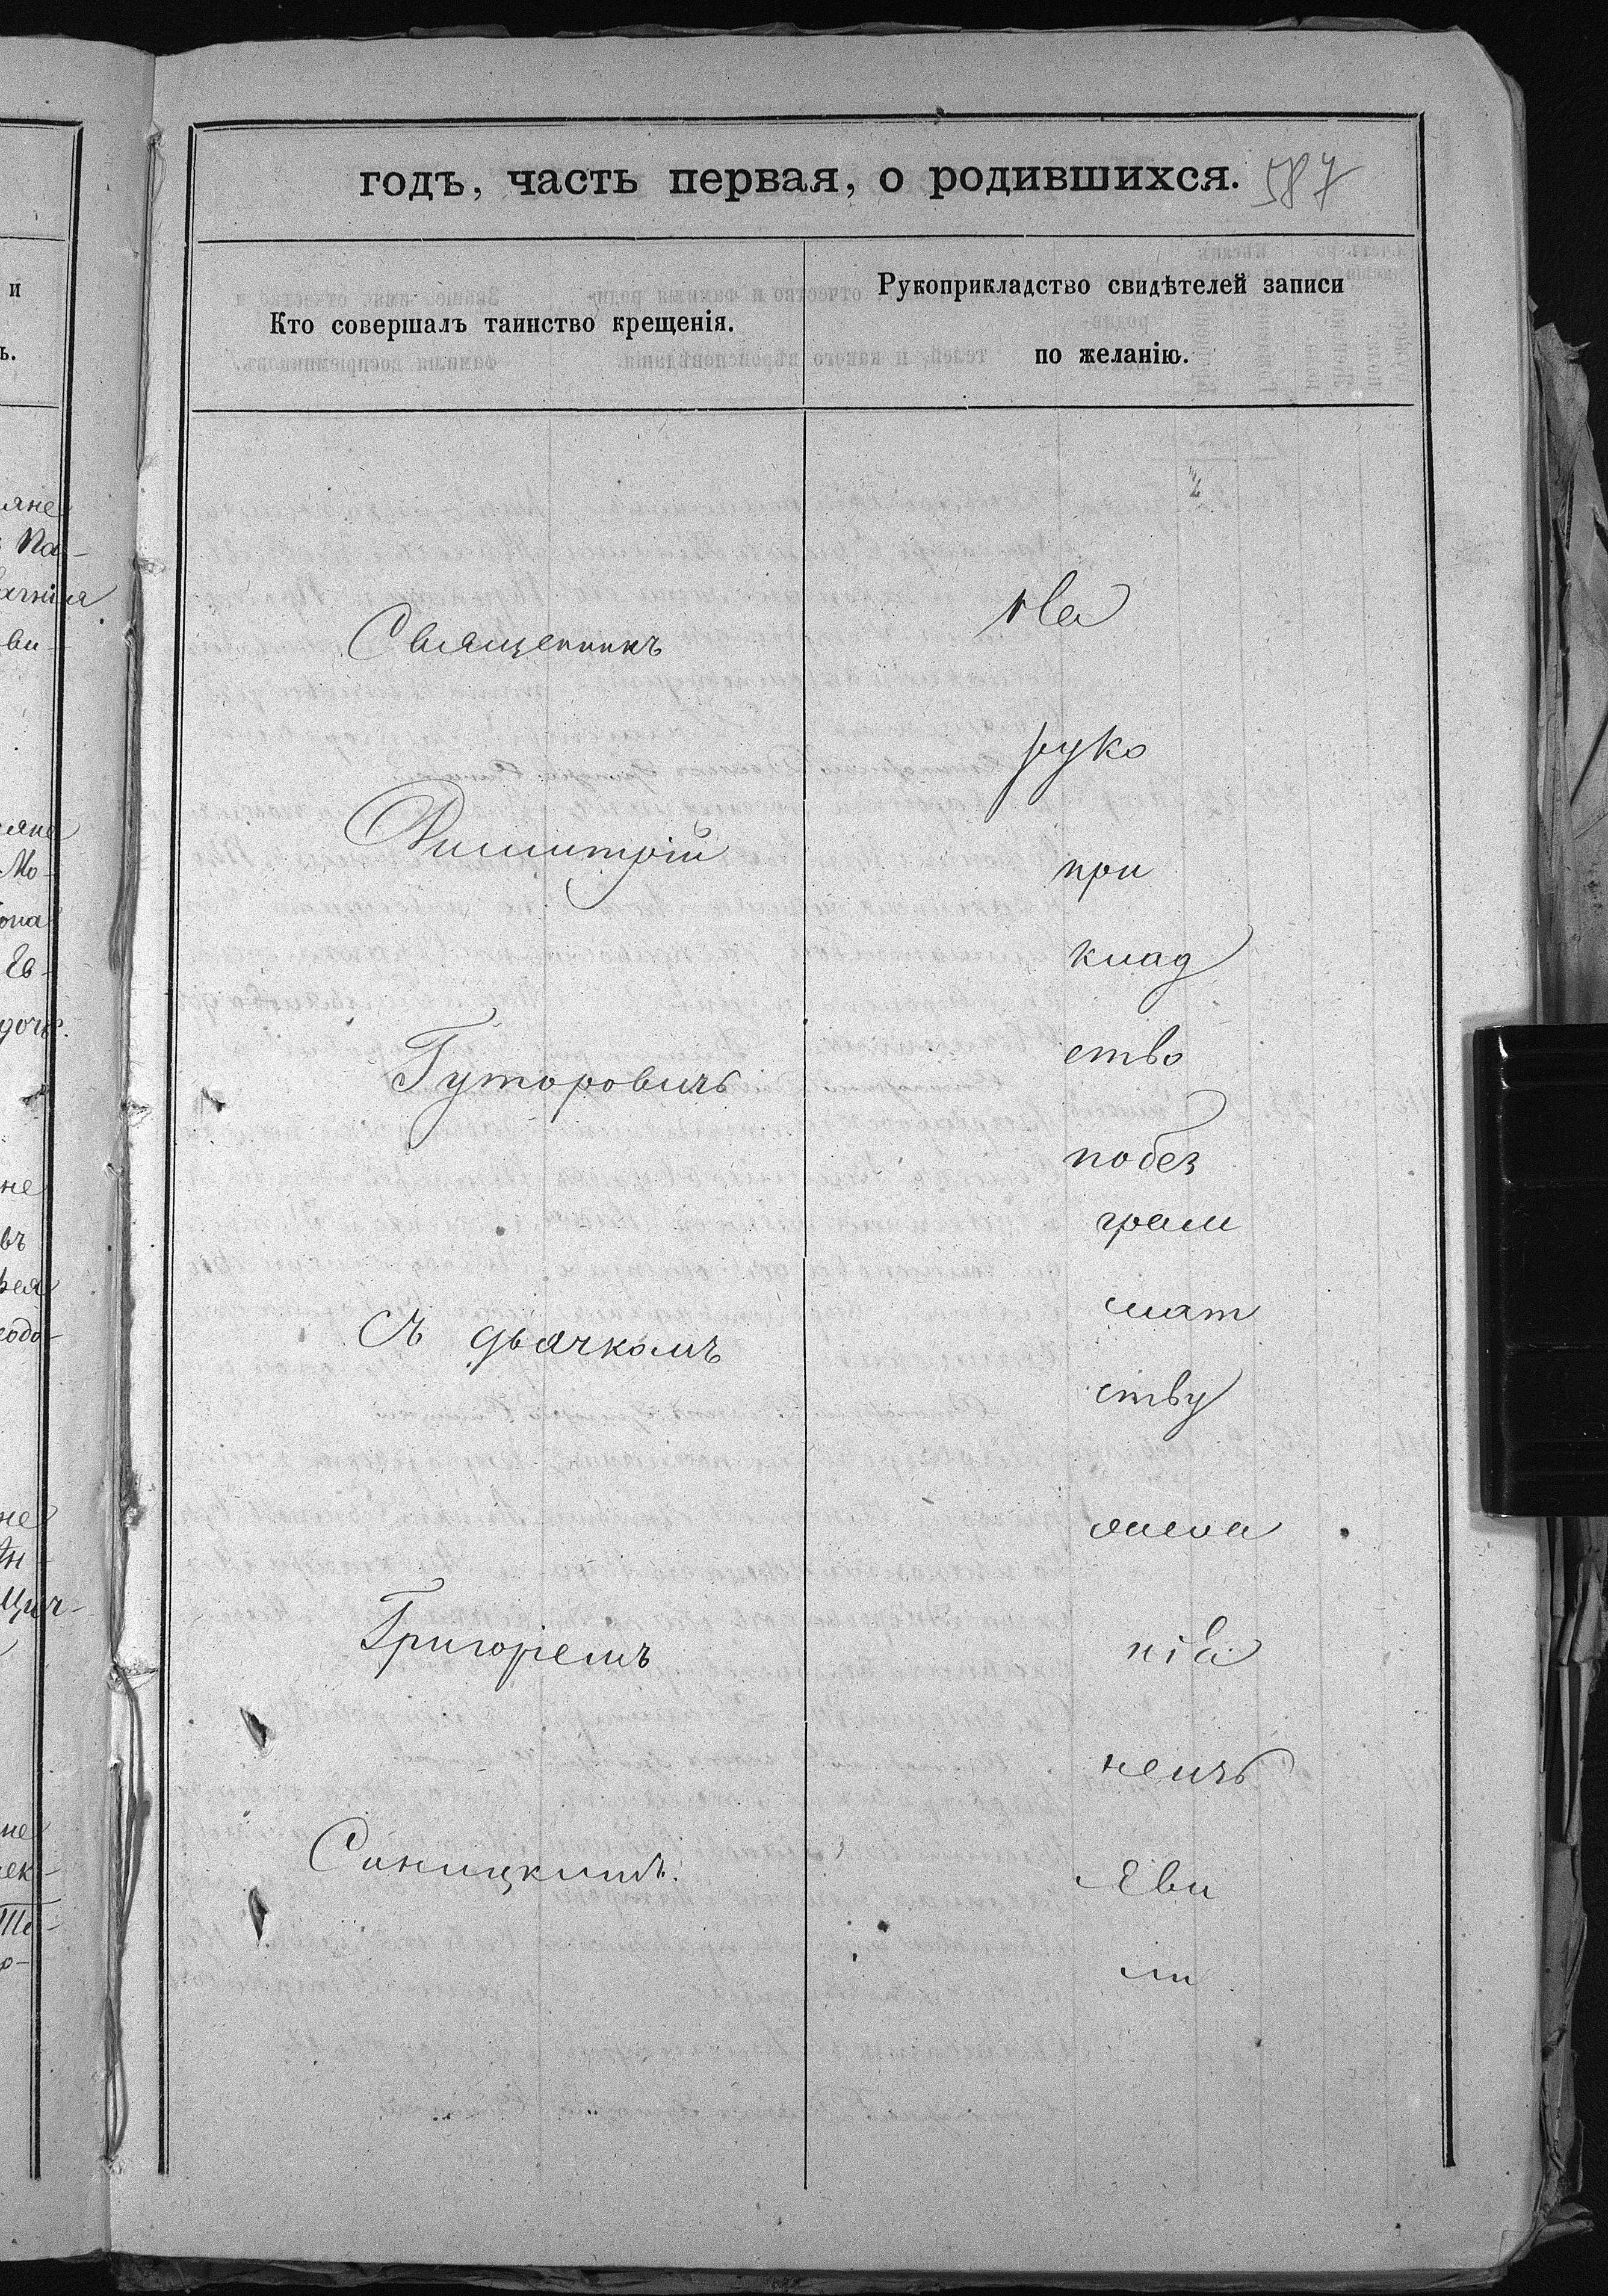 годъ, часть первая, о родившихся. 587
Кто совершалъ таинство крещенія.
Рукоприкладство свидѣтелей записи
по желанію.
Священникъ
Димитрій
Гуторовичъ
съ дьячкомъ
Григоріемъ
Синицкимъ.
На
руко
при
клад
ство
побез
грам
мат
ству
жела
нія
неизъ
яви
ли
и
ъ.
яне
Па-
ви-
яне
Мо-
она
Ев-
дочь.
не
въ
одо-
не
не
ек-